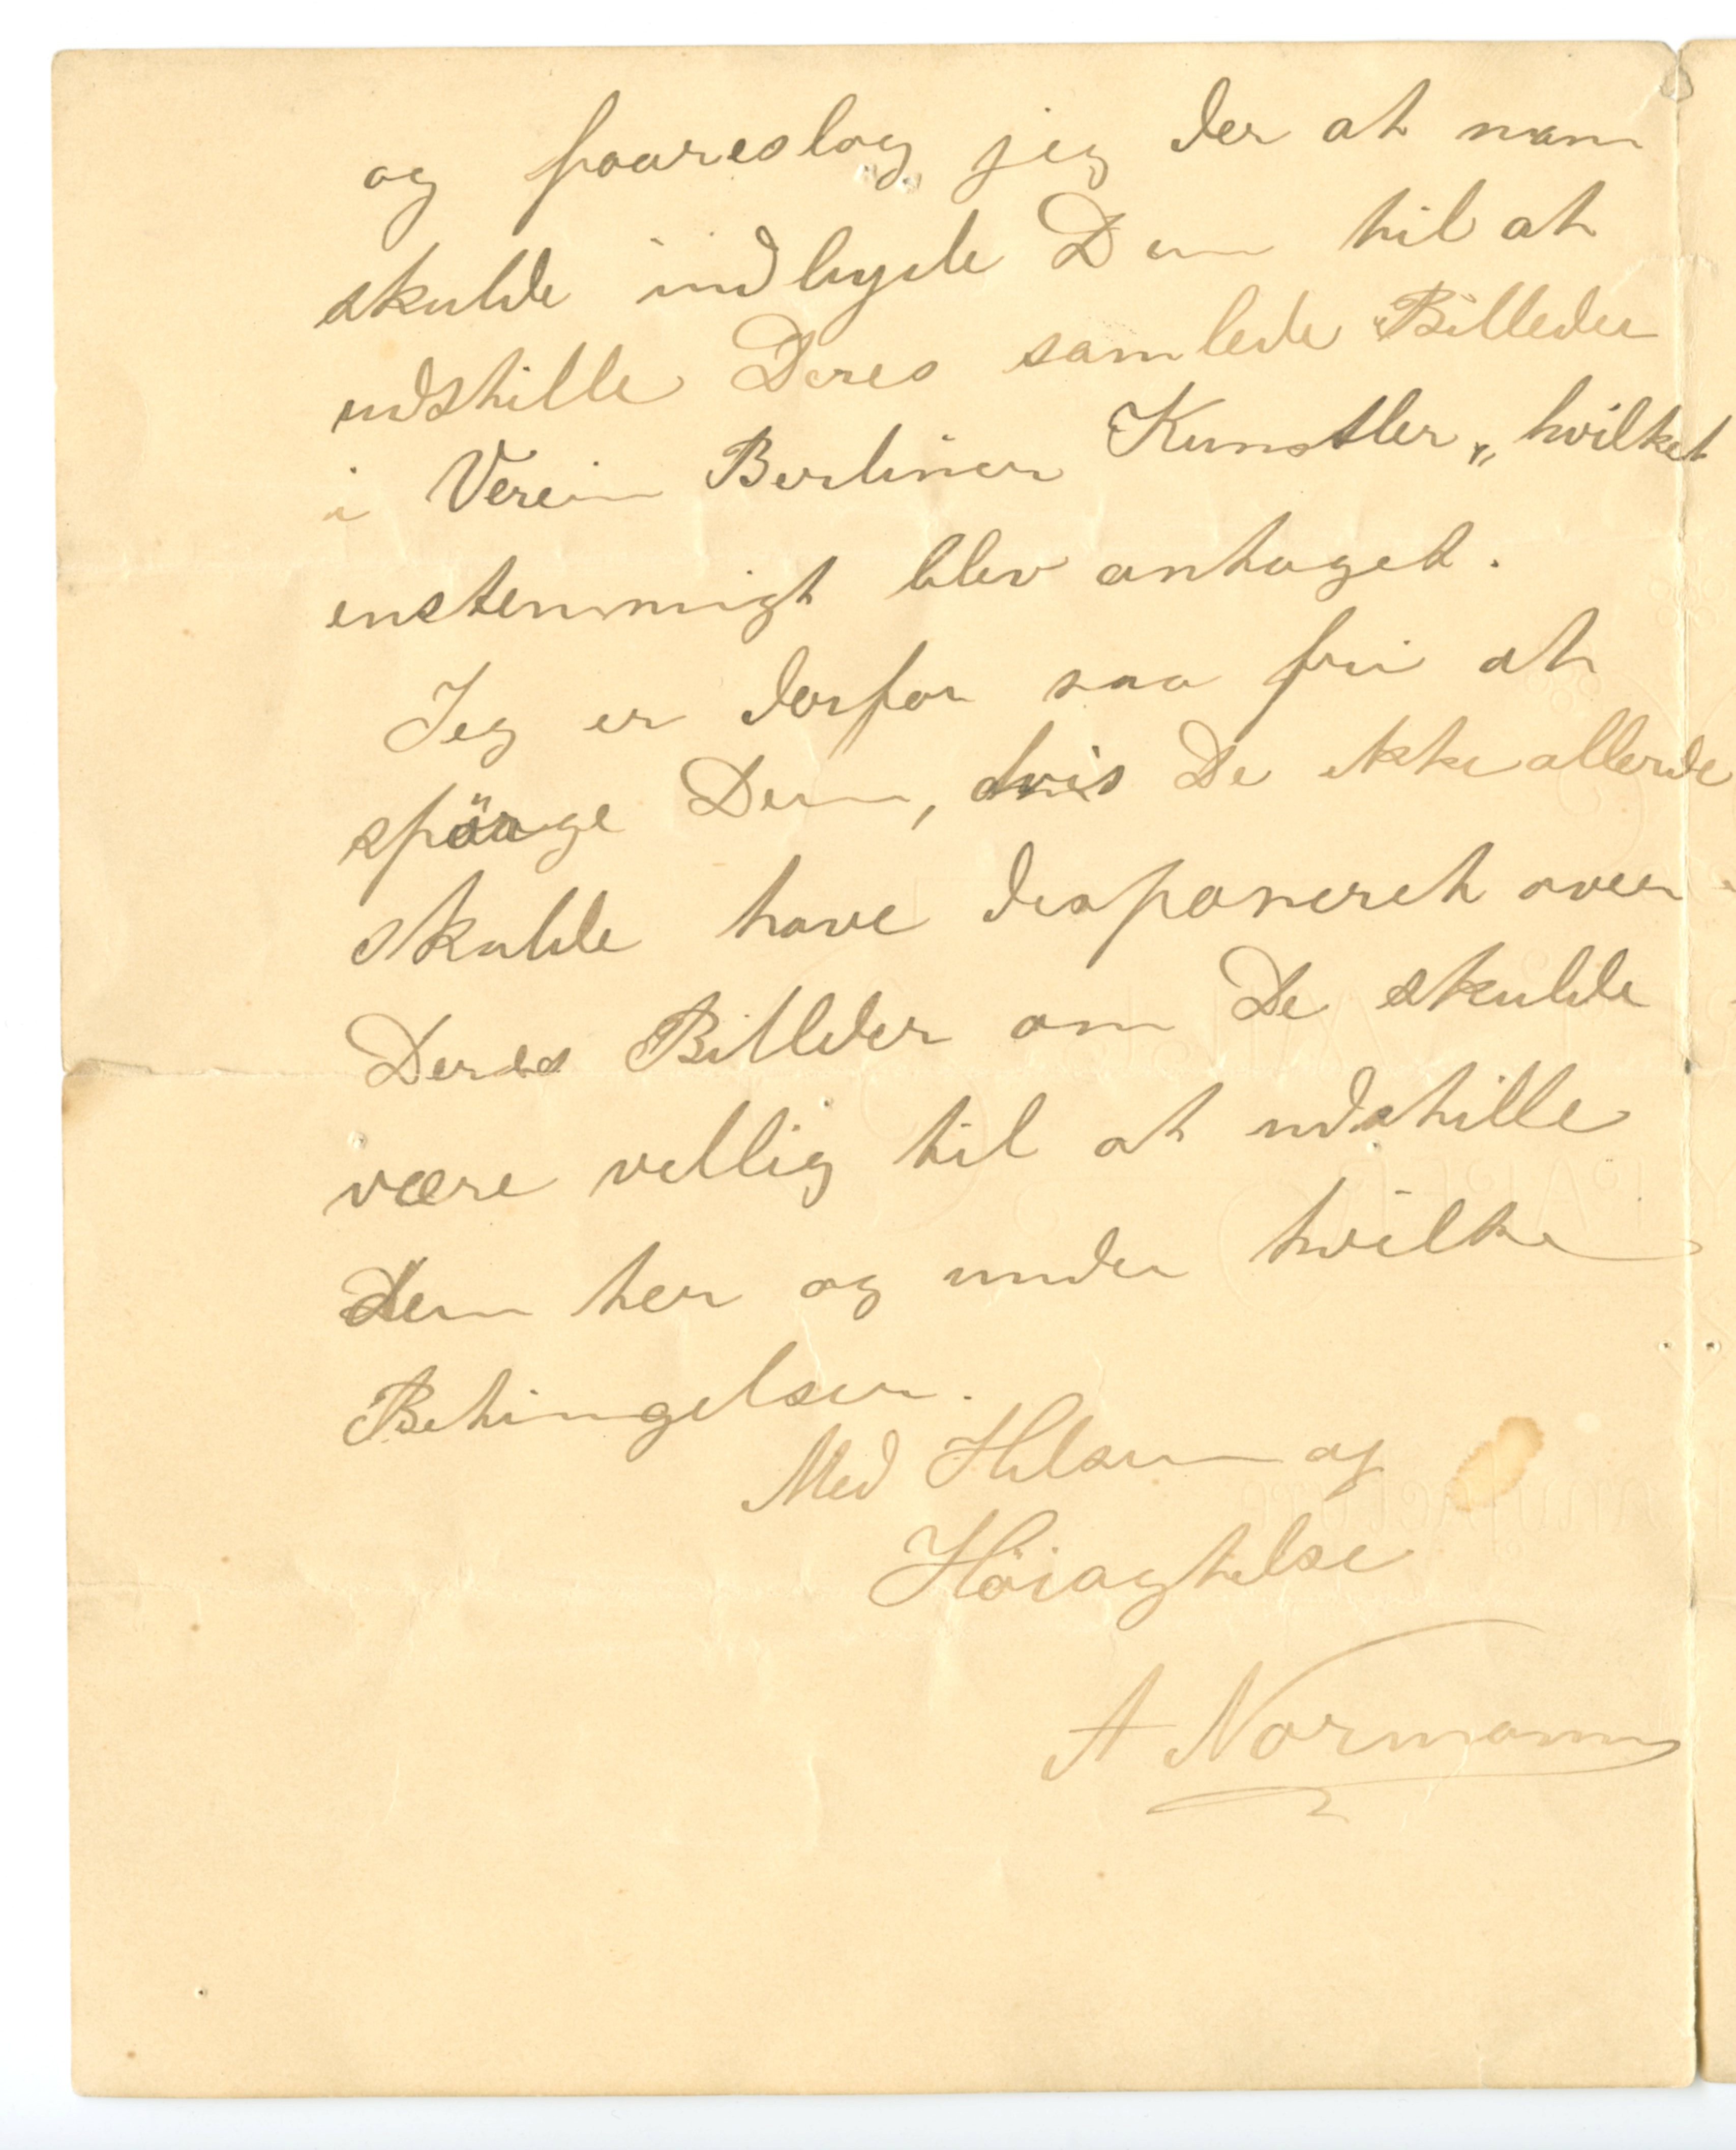 og faareslog jeg der at man
skulde indbyde Dem til at
udstille Deres samlede Billeder
i Verein Berliner Kunstler„ hvilket
enstemmigt blev antaget.
Jeg er derfor saa fri at
spörge Dem, hvis De ikke allerede
skulde have desponeret over
Deres Billeder om De skulde
være vellig til at udstille
dem her og under hvilke
Betingelser.
Med Hilsen og
Höiagtelse
A Normann